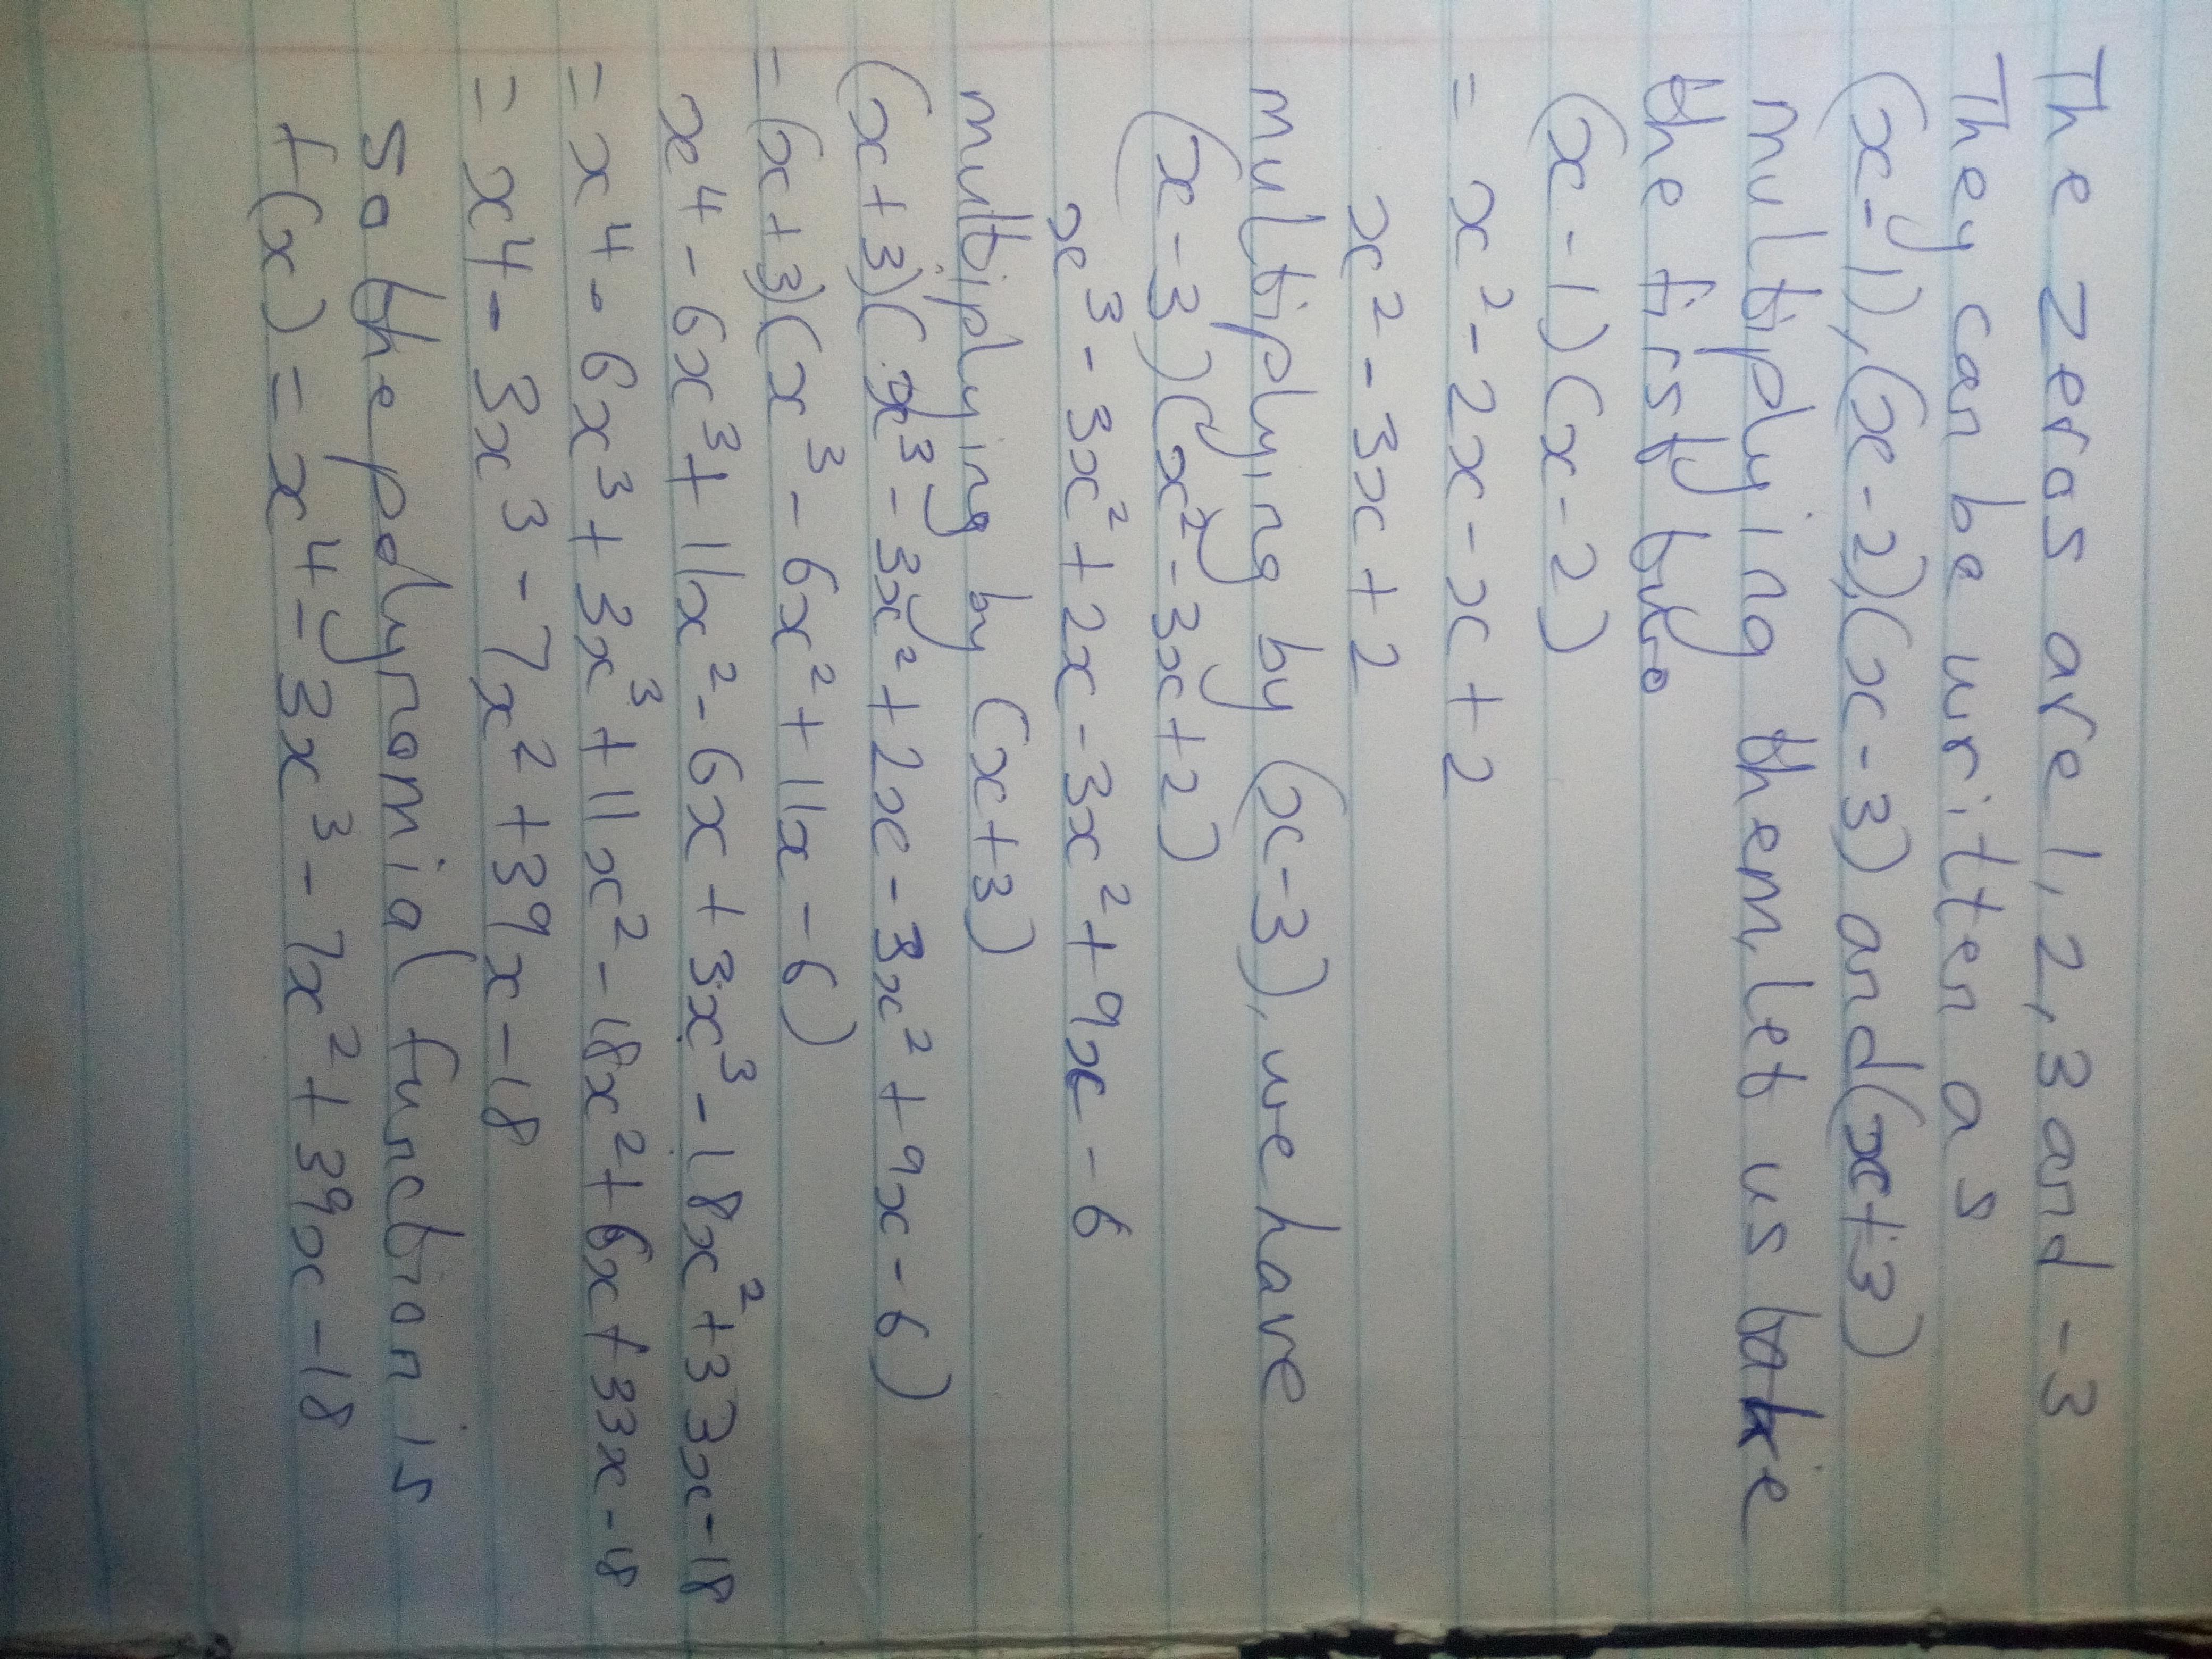 The zeros are 1, 2, 3 and -3
They can be written as
(x-1), (x-2), (x-3) and (x+3)
multiplying them, let us take
the first two
(x-1)(x-2)
= x² - 2x - x + 2
x² - 3x + 2
multiplying by (x-3), we have
(x-3)(x² - 3x + 2)
x³ - 3x² + 2x - 3x² + 9x - 6
multiplying by (x+3)
(x+3)(x³ - 3x² + 2x - 3x² + 9x - 6)
= (x+3)(x³ - 6x² + 11x - 6)
x⁴ - 6x³ + 11x² - 6x + 3x³ - 18x² + 33x - 18
= x⁴ - 6x³ + 3x³ + 11x² - 18x² + 6x + 33x - 18
= x⁴ - 3x³ - 7x² + 39x - 18
so the polynomial function is
f(x) = x⁴ - 3x³ - 7x² + 39x - 18